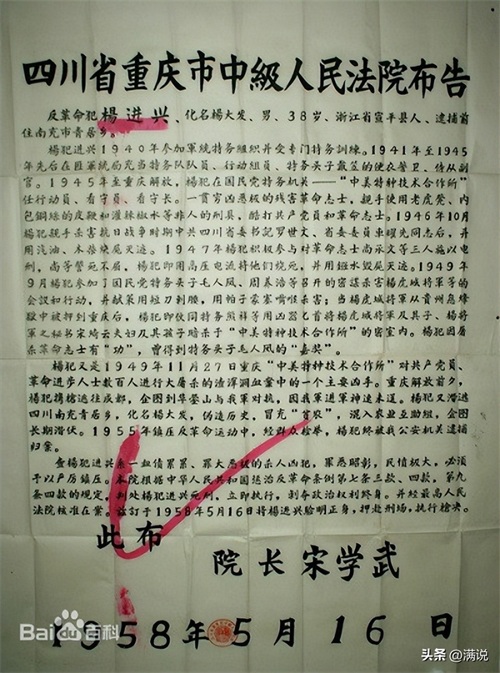 四川省重庆市中級人民法院布告
反革命犯楊进兴、化名楊大发、男、38岁、浙江省宣平县人、逮捕前
住南充市青居乡。
楊犯进兴1940年参加軍統特务組织并受专門特务訓练。1941年至1945
年先后在匪軍統局充当特务队队員、行动組員、特务头子戴笠的便衣警卫、侍从副
官。1945年至重庆解放,楊犯在国民党特务机关——“中美特种技术合作所”
任行动員、看守員、看守长。一貫穷凶极恶的残害革命志士,親手使用老虎凳、内
包鋼絲的皮鞭和灌辣椒水等非人的刑具,酷打共产党員和革命志士。1946年10月
楊犯親手杀害抗日战爭时期中共四川省委书記罗世文、省委委員車耀先同志后,并
用汽油、木柴焚尾灭迹。1947年楊犯积极参与对革命志士尚承文等三人施以电
刑,尚等誓死不屈,楊犯即用高压电流将他們烧死,并用鏹水毀尾灭迹。1949年
9月楊犯参加了国民党特务头子毛人鳳、周养浩等召开的密謀杀害楊虎城将軍等的
会議和行动,并献策用短刀刺腰,用帕子蒙嘴喉杀害;当楊虎城将軍从貴州息烽
獄中被押到重庆后,楊犯即伙同特务熊祥等用凶器匕首将楊虎城将軍及其子、楊将
軍之秘书宋綺云夫妇及其孩子暗杀于“中美特种技术合作所”的密室内。楊犯因屠
杀革命志士有“功”,曾得到特务头子毛人鳳的“嘉奖”。
楊犯又是1949年11月27日重庆“中美特种技术合作所”对共产党員、
革命进步人士数百人进行大屠杀的渣滓洞血案中的一个主要凶手。重庆解放前夕,
楊犯携槍逃往成都,企图到华蓥山与我軍对抗,因我軍进軍神速未遂。楊犯又潜逃
四川南充青居乡,化名楊大发,伪造历史,冒充“貧农”,混入农业互助組,企图
长期潜伏。1955年镇压反革命运动中,经群众检举,楊犯終被我公安机关逮捕
归案。
查楊犯进兴系一血債累累、罪大恶极的杀人凶犯,罪恶昭彰,民憤极大,必須
予以严厉鎮压。本院根据中华人民共和国惩治反革命条例第七条三款、四款、第九
条四款的規定,判处楊犯进兴死刑,立即执行,剝夺政治权利終身。并经最高人民
法院核准在案。茲訂于1958年5月16日将楊进兴驗明正身,押赴刑场,执行槍决。
此布
院长宋学武
1958年5月16日
Bai百科
头条@满说